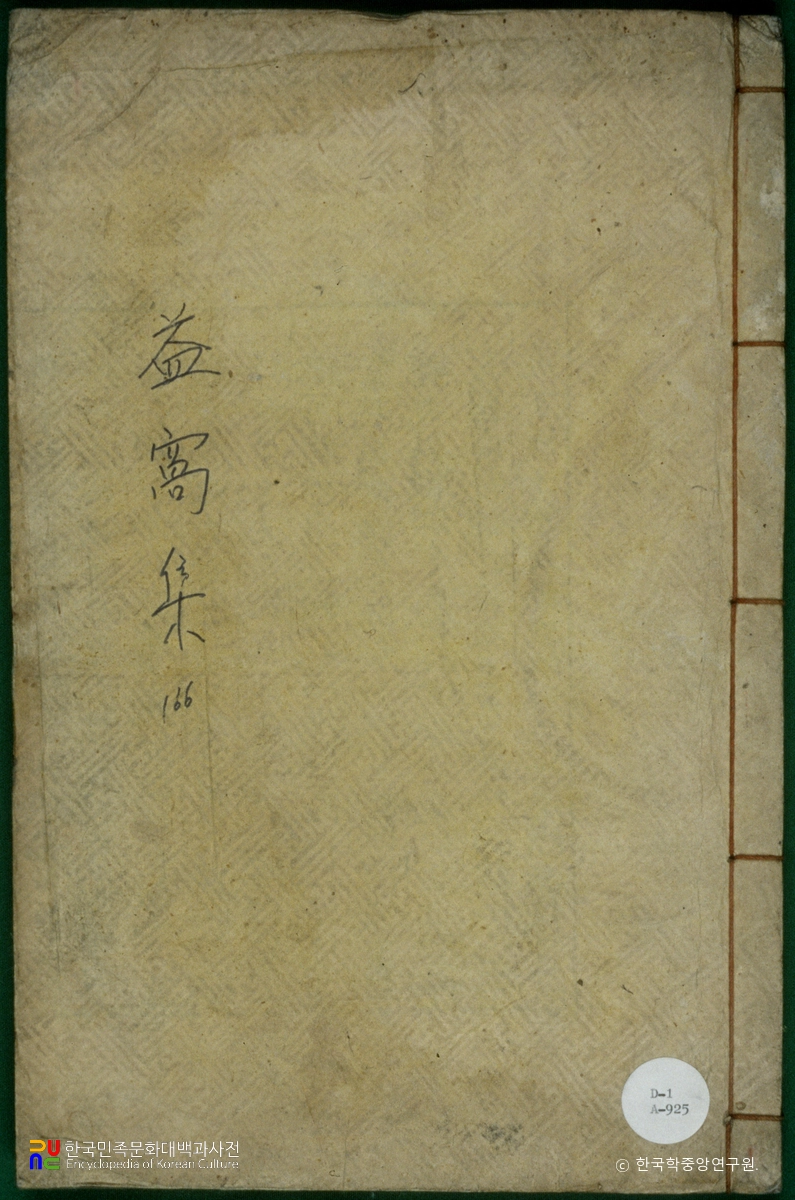 益窩集
166
D-1
A-925
한국민족문화대백과사전
Encyclopedia of Korean Culture
© 한국학중앙연구원.